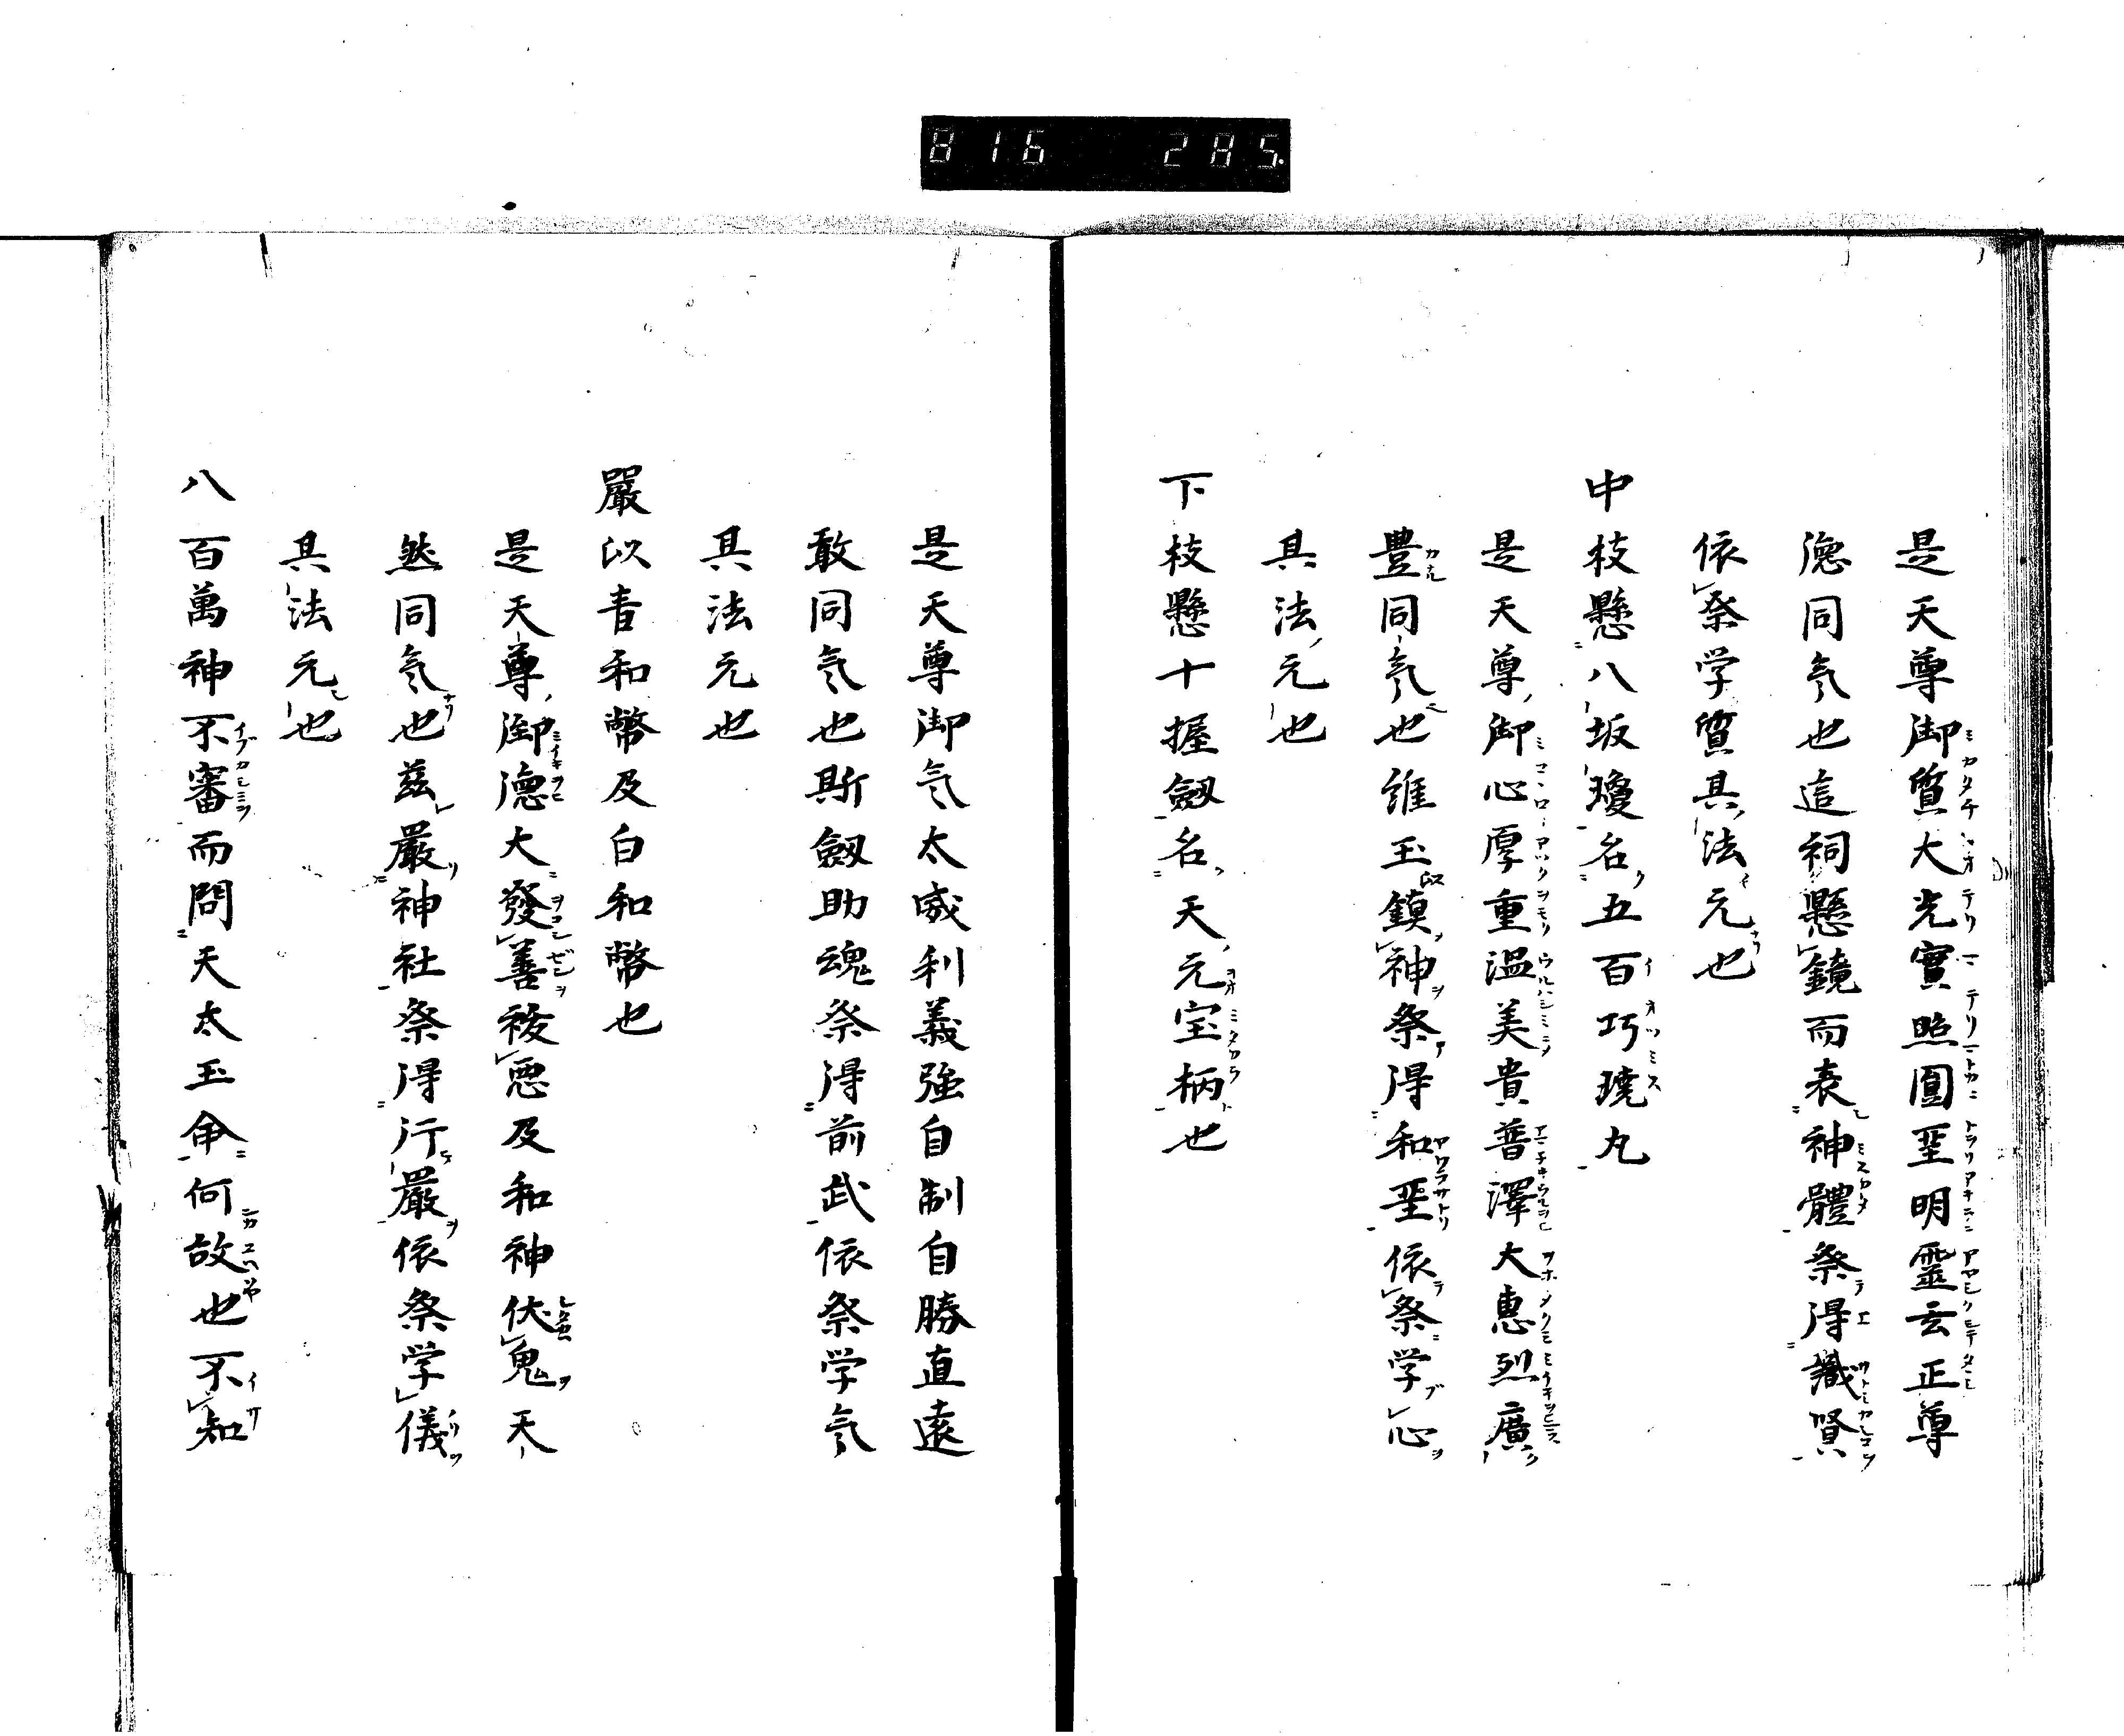 816 285
是天尊御質大光實照圓至明靈玄正尊
德同氣也這祠懸鏡而表神體祭得識賢
依祭学質具法元也
中枝懸八坂瓊名五百巧璄丸
是天尊御心厚重温美貴普澤大惠烈廣
豊同氣也誰玉鎮神祭得和至依祭学心
具法元也
下枝懸十握劔名天元宝柄也
是天尊御气太威利義強自制自勝直遠
敢同気也斯劔助魂祭得前武依祭学氣
具法元也
嚴以青和幣及白和幣也
是天尊御德大發善祓悪及和神伏鬼天
然同氣也兹嚴神社祭得行嚴依祭学儀
具法元也
八百萬神不審而問天太玉命何故也不知